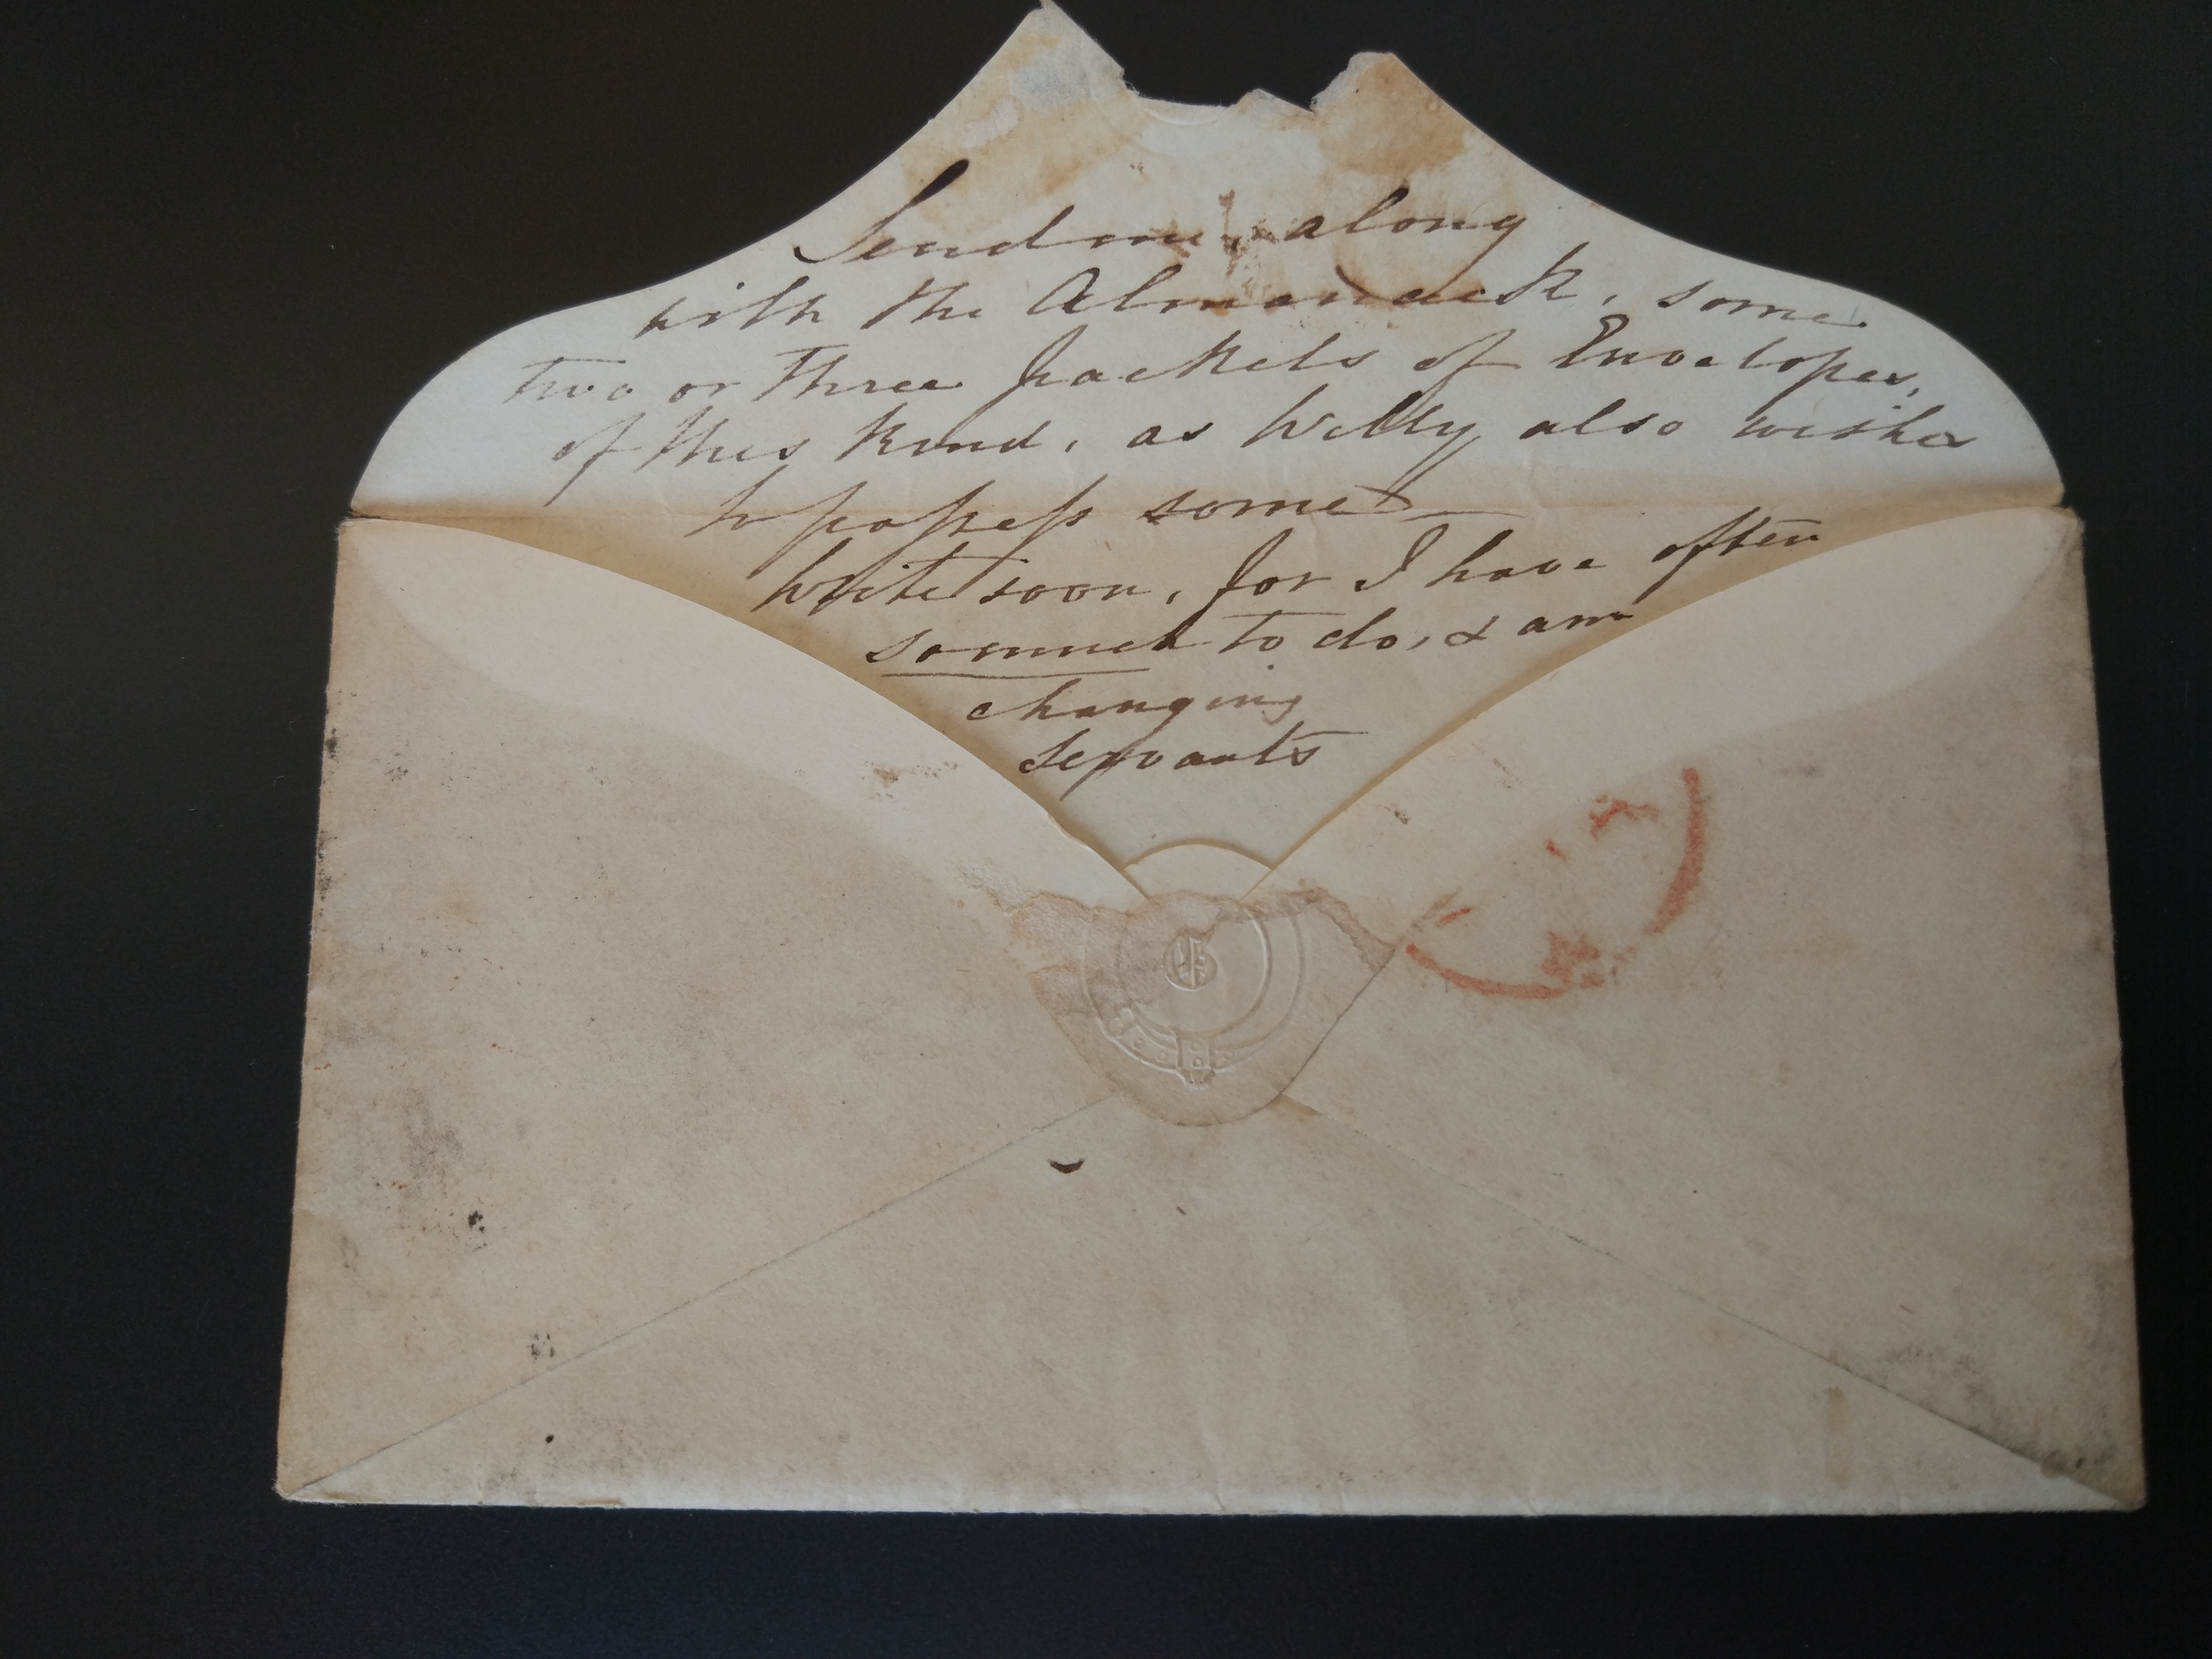 Send me, along
with the Almanack, some
two or three packets of Envelopes,
of this kind, as Willy also wishes
to possess some
Write soon, for I have often
so much to do, & am
changing
servants